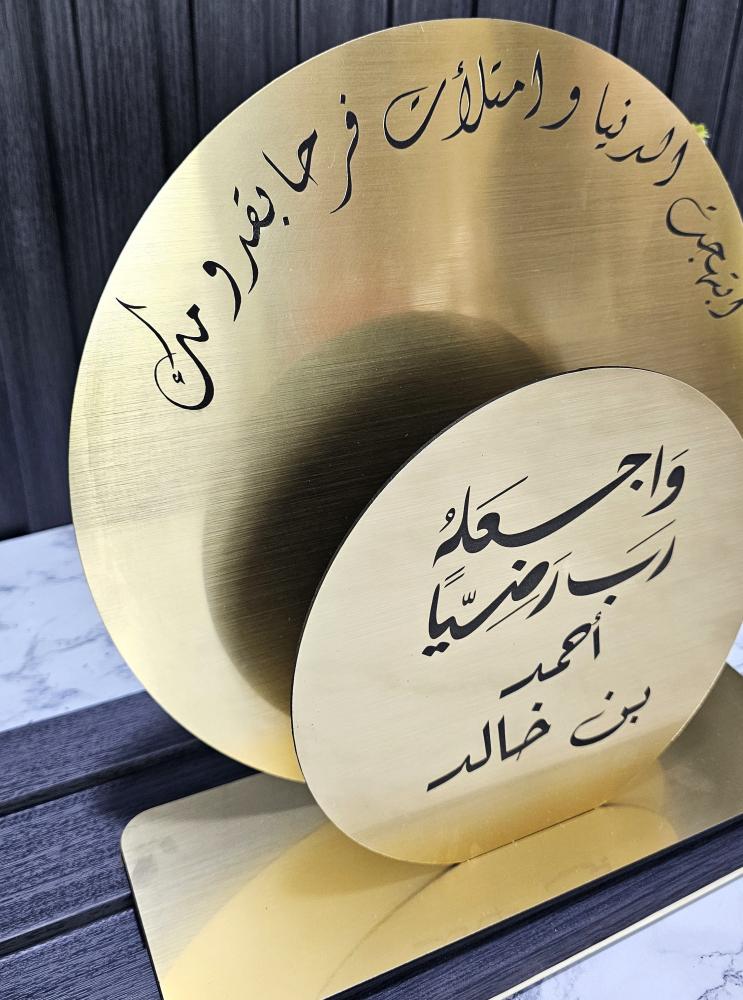 ابتهجت الدنيا و امتلأت فرحا بقدومك
وَاجعَلهُ
رَب رَضِيًّا
أحمد
بن خالد